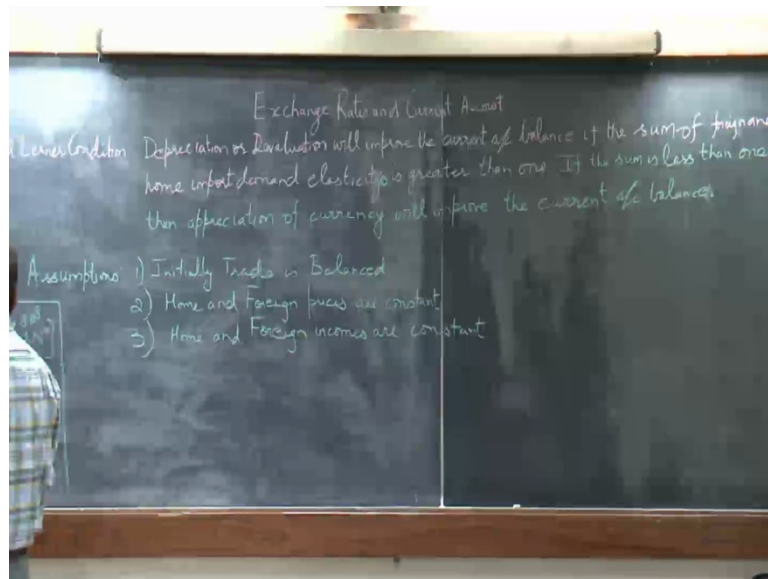 Exchange Rates and Current Account
Lerner Condition Depreciation or Devaluation will improve the current a/c balance if the sum of
home import demand elasticity is greater than one If the sum is less than one
then appreciation of currency will improve the current a/c balance.
Assumptions 1) Initially Trade is Balanced
2) Home and Foreign prices are constant
3) Home and Foreign incomes are constant